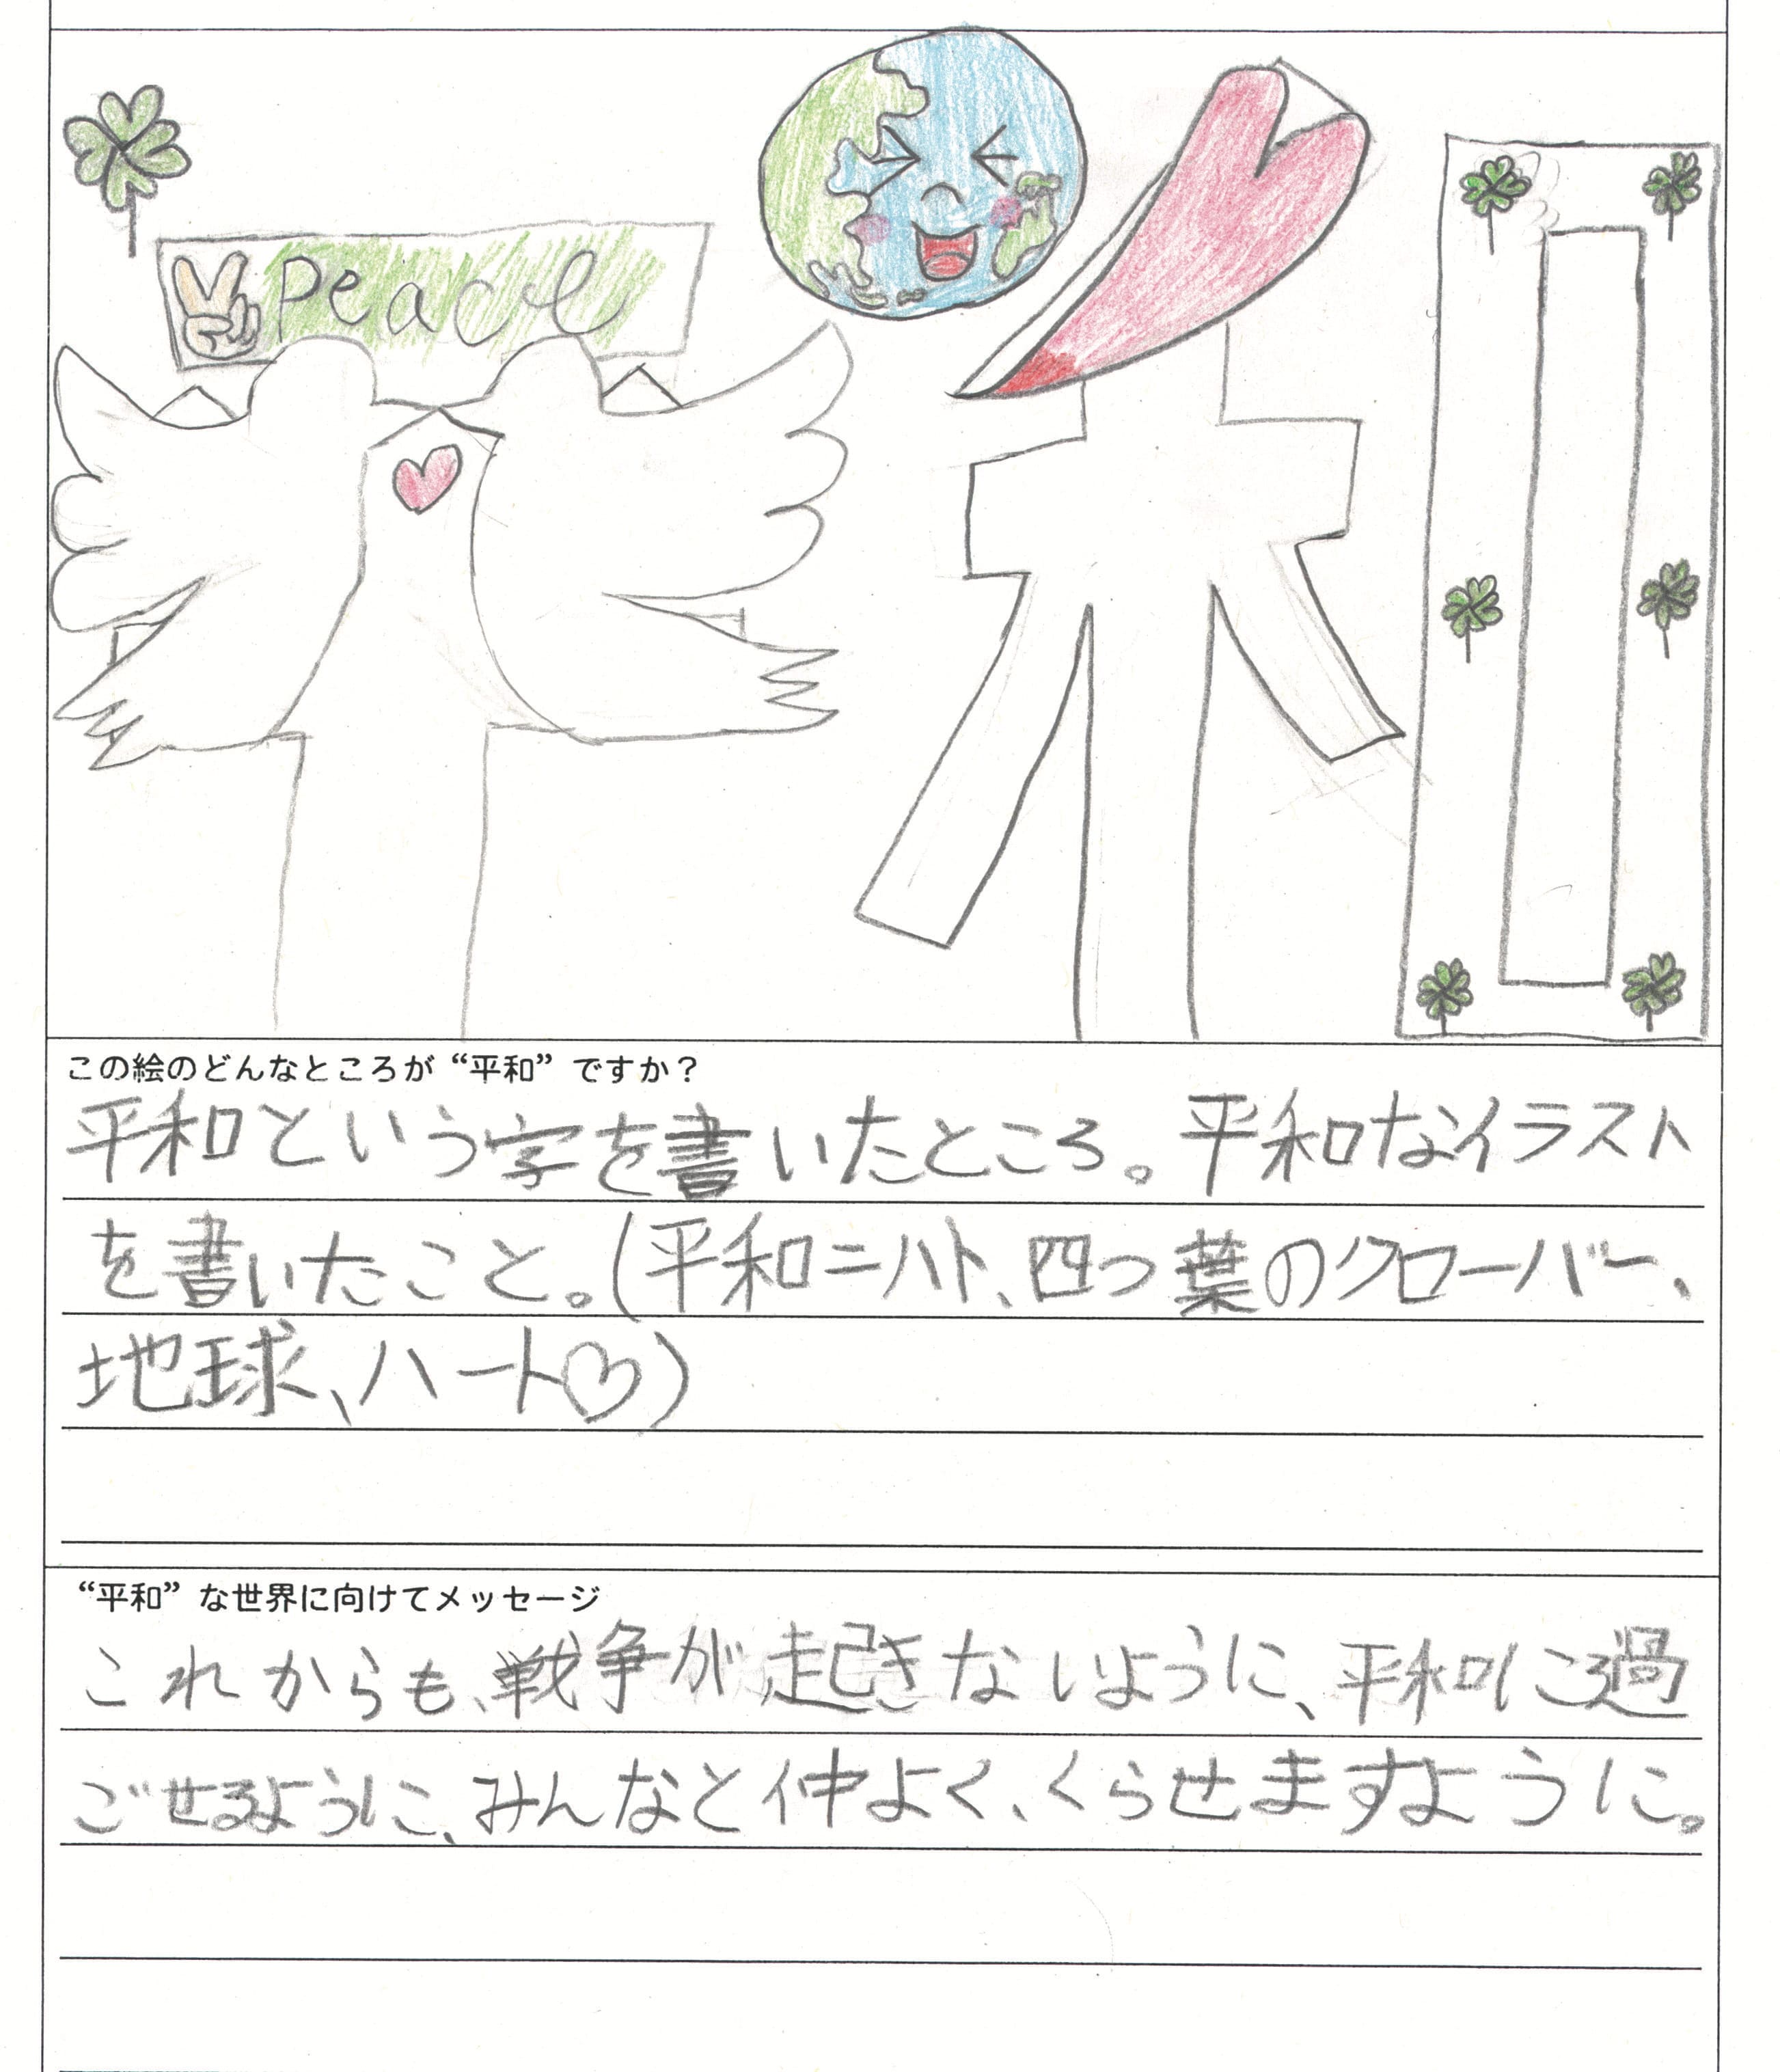 Peace
平和
この絵のどんなところが“平和”ですか?
平和という字を書いたところ。平和なイラスト
を書いたこと。(平和=ハト、四つ葉のクローバー、
地球、ハート♡)
“平和”な世界に向けてメッセージ
これからも、戦争が起きないように、平和に過
ごせるように、みんなと仲よく、くらせますように。